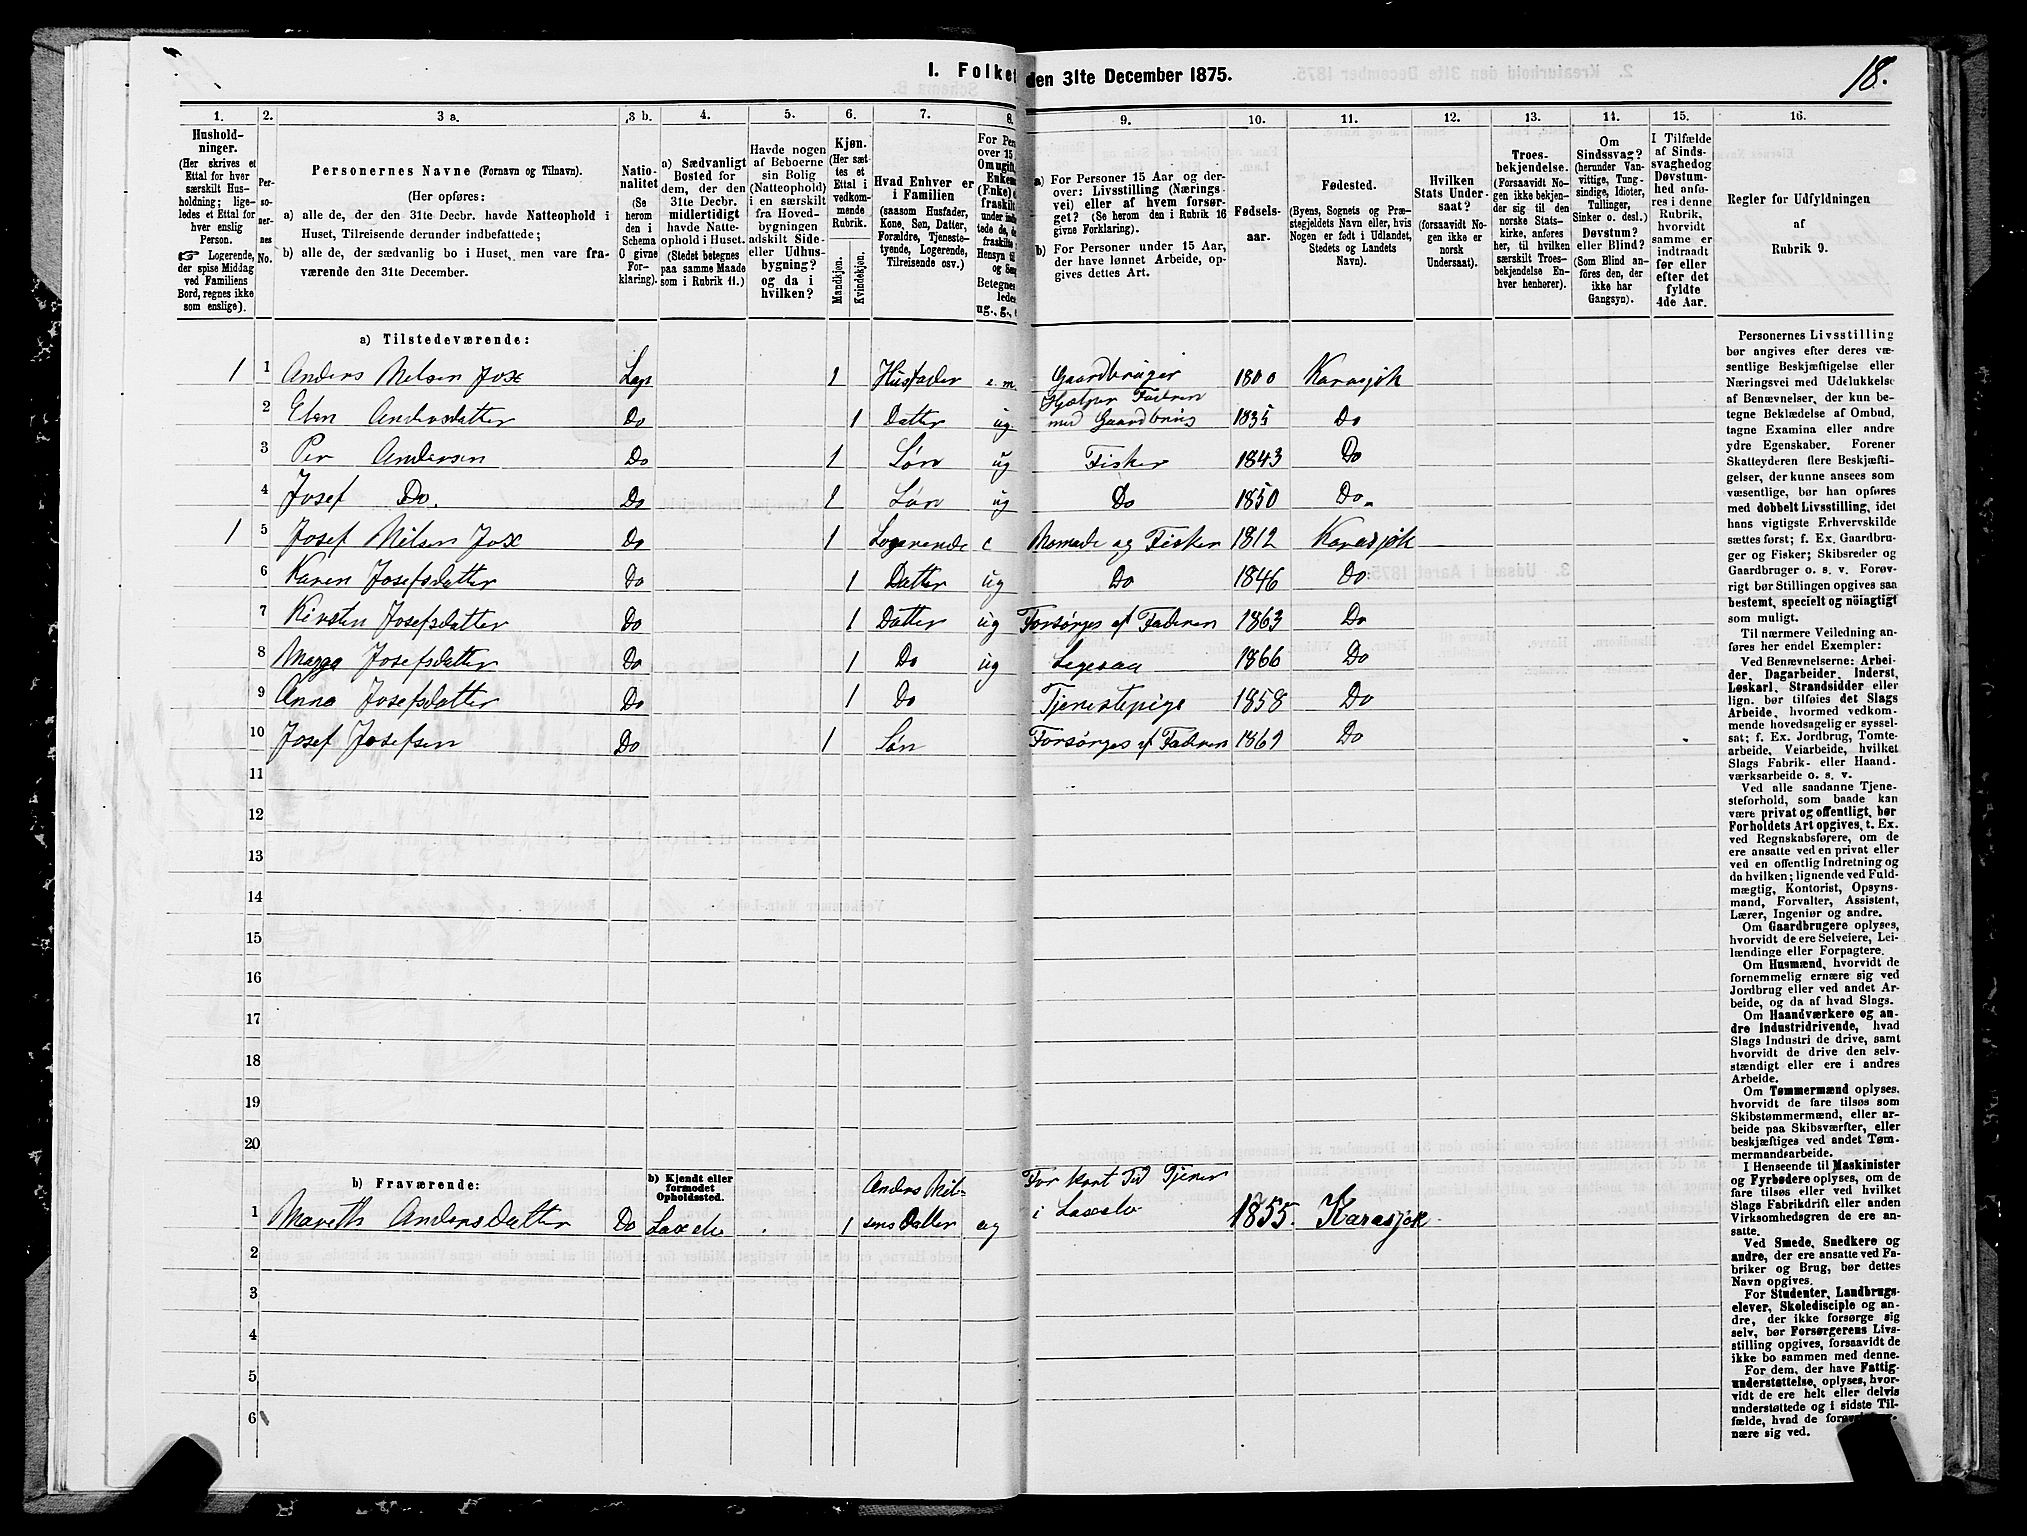 18.
I. Folket
den 31te December 1875.
1. 2. 3 a. 3 b. 4. 5. 6. 7. 8. 9. 10. 11. 12. 13. 14. 15. 16.
Hushold-
ninger.
(Her skrives et
Ettal for hver
særskilt Hus-
holdning; lige-
ledes et Ettal for
hver enslig
Person.
☞ Logerende,
der spise Middag
ved Familiens
Bord, regnes ikke
som enslige).
Per-
so-
ner-
nes
No.
Personernes Navne (Fornavn og Tilnavn).
(Her opføres:
a) alle de, der den 31te Decbr. havde Natteophold i
Huset, Tilreisende derunder indbefattede;
b) alle de, der sædvanlig bo i Huset, men vare fra-
værende den 31te December.
Natio-
nalitet
(Se
herom
den i
Schema
C givne
For-
klaring).
a) Sædvanligt
Bosted for
dem, der den
31te Decbr.
midlertidigt
havde Natte-
ophold i Huset.
(Stedet betegnes
paa samme Maade
som i Rubrik 11.)
Havde nogen
af Beboerne
sin Bolig
(Natteophold)
i en særskilt
fra Hoved-
bygningen
adskilt Side-
eller Udhus-
bygning?
og da i
hvilken?
Kjøn.
(Her sæt-
tes et
Ettal i
vedkom-
mende
Rubrik.
Mandkjøn.
Kvindekjøn.
Hvad Enhver er
i Familien
(saasom Husfader,
Kone, Søn, Datter,
Forældre, Tjeneste-
tyende, Logerende,
Tilreisende osv.)
For Per
over 15
Omugift,
Enkem
(Enke)
fraskilt
under ind
tede de,
fraskilte
Hensyn til
og Sen
Betegnes
lede
ug., g., e
a) For Personer 15 Aar og der-
over: Livsstilling (Nærings-
vei) eller af hvem forsør-
get? (Se herom den i Rubrik 16
givne Forklaring).
b) For Personer under 15 Aar,
der have lønnet Arbeide, op-
gives dettes Art.
Fødsels-
aar.
Fødested.
(Byens, Sognets og Præ-
stegjeldets Navn eller, hvis
Nogen er født i Udlandet,
Stedets og Landets
Navn).
Hvilken
Stats Under-
saat?
(forsaavidt No-
gen ikke er
norsk
Undersaat).
Troes-
bekjendelse.
(Forsaavidt No-
gen ikke bekjen-
der sig til den
norske Stats-
kirke, anføres
her, til hvilken
særskilt Troes-
bekjendelse En-
hver henhører).
Om
Sindssvag?
(herunder Van-
vittige, Tung-
sindige, Idioter,
Tullinger,
Sinker o. desl.)
Døvstum?
eller Blind?
(Som Blind an-
føres den, der
ikke har
Gangsyn).
I Tilfælde
af Sinds-
svaghedog
Døvstum-
hed anfø-
res i denne
Rubrik,
hvorvidt
samme er
indtraadt
før eller
efter det
fyldte
4de Aar.
Regler for Udfyldningen
af
Rubrik 9.
a) Tilstedeværende:
1 1 Anders Nilsen Jox Lap 1 Husfader e. m. Gaardbruger 1800 Karasjok
2 Elen Andersdatter Do 1 Datter ug. Hjælper Faderen
med Gaardbrug 1835 Do
3 Per Andersen Do 1 Søn ug Fisker 1843 Do
4 Josef Do. Do 1 Søn ug Do 1850 Do.
1 5 Josef Nilsen Jox Do 1 Logerende e Nomade og Fisker 1812 Karasjok
6 Karen Josefsdatter Do 1 Datter ug Do 1846 Do
7 Kirsten Josefsdatter Do 1 Datter ug Forsørges af Faderen 1863 Do
8 Magga Josefsdatter Do 1 Do ug Ligesaa 1866 Do
9 Anna Josefsdatter Do 1 Do Tjenestepige 1858 Do
10 Josef Josefsen Do 1 Søn Forsørges af Faderen 1869 Do
11
12
13
14
15
16
17
18
19
20
b) Fraværende:
b) Kjendt eller
formodet
Opholdssted.
Anders Nil- For kort Tid Tjener
1 Mareth Andersdatter Do Laxelv 1 sens Datter ug i Laxelv 1855. Karasjok
2
3
4
5
6
Personernes Livsstilling
bør angives efter deres væ-
sentlige Beskjæftigelse eller
Næringsvei med Udelukkelse
af Benævnelser, der kun be-
tegne Beklædelse af Ombud,
tagne Examina eller andre
ydre Egenskaber. Forener
Skatteyderen flere Beskjæfti-
gelser, der kunne ansees som
væsentlige, bør han opføres
med dobbelt Livsstilling, idet
hans vigtigste Erhvervskilde
sættes først; f. Ex. Gaardbru-
ger og Fisker; Skibsreder og
Gaardbruger o. s. v. Forøv-
rigt bør Stillingen opgives saa
bestemt, specielt og nöiagtigt
som muligt.
Til nærmere Veiledning an-
føres her endel Exempler:
Ved Benævnelserne: Arbei-
der, Dagarbeider, Inderst,
Løskarl, Strandsidder eller
lign. bør tilføies det Slags
Arbeide, hvormed vedkom-
mende hovedsagelig er syssel-
sat; f. Ex. Jordbrug, Tomte-
arbeide, Veiarbeide, hvilket
Slags Fabrik- eller Haand-
værksarbeide o. s. v.
Ved alle saadanne Tjene-
steforhold, som baade kan
være privat og offentligt, bør
Forholdets Art opgives, t. Ex.
ved Regnskabsførere, om de
ere ansatte ved en privat eller
ved en offentlig Indretning og
da hvilken; lignende ved Fuld-
mægtig, Kontorist, Opsyns-
mand, Forvalter, Assistent,
Lærer, Ingeniør og andre.
Om Gaardbrugere oplyses,
hvorvidt de ere Selveiere, Lei-
lændinge eller Forpagtere.
Om Husmænd, hvorvidt de
fornemmelig ernære sig ved
Jordbrug eller ved andet Ar-
beide, og da af hvad Slags.
Om Haandværkere og an-
dre Industridrivende, hvad
Slags Industri de drive, samt
hvorvidt de drive den selv-
stændigt eller ere i andres
Arbeide.
Om Tømmermænd oplyses,
hvorvidt de fare tilsøs som
Skibstømmermænd, eller ar-
beide paa Skibsværfter, eller
beskjæftiges ved andet Tøm-
mermandsarbeide.
I Henseende til Maskinister
og Fyrbødere oplyses, om de
fare tilsøs eller ved hvilket
Slags Fabrikdrift eller anden
Virksomhedsgren de ere an-
satte.
Ved Smede, Snedkere og
andre, der ere ansatte ved Fa-
briker og Brug, bør dettes
Navn opgives.
For Studenter, Landbrugs-
elever, Skoledisciple og an-
dre, der ikke forsørge sig
selv, bør Forsørgerens Livs-
stilling opgives, forsaavidt de
ikke bo sammen med denne.
For dem, der have Fattig-
understøttelse, oplyses, hvor-
vidt de ere helt eller delvis
understøttede og i sidste Til-
fælde, hvad de forøvrigt er-
nære sig ved.